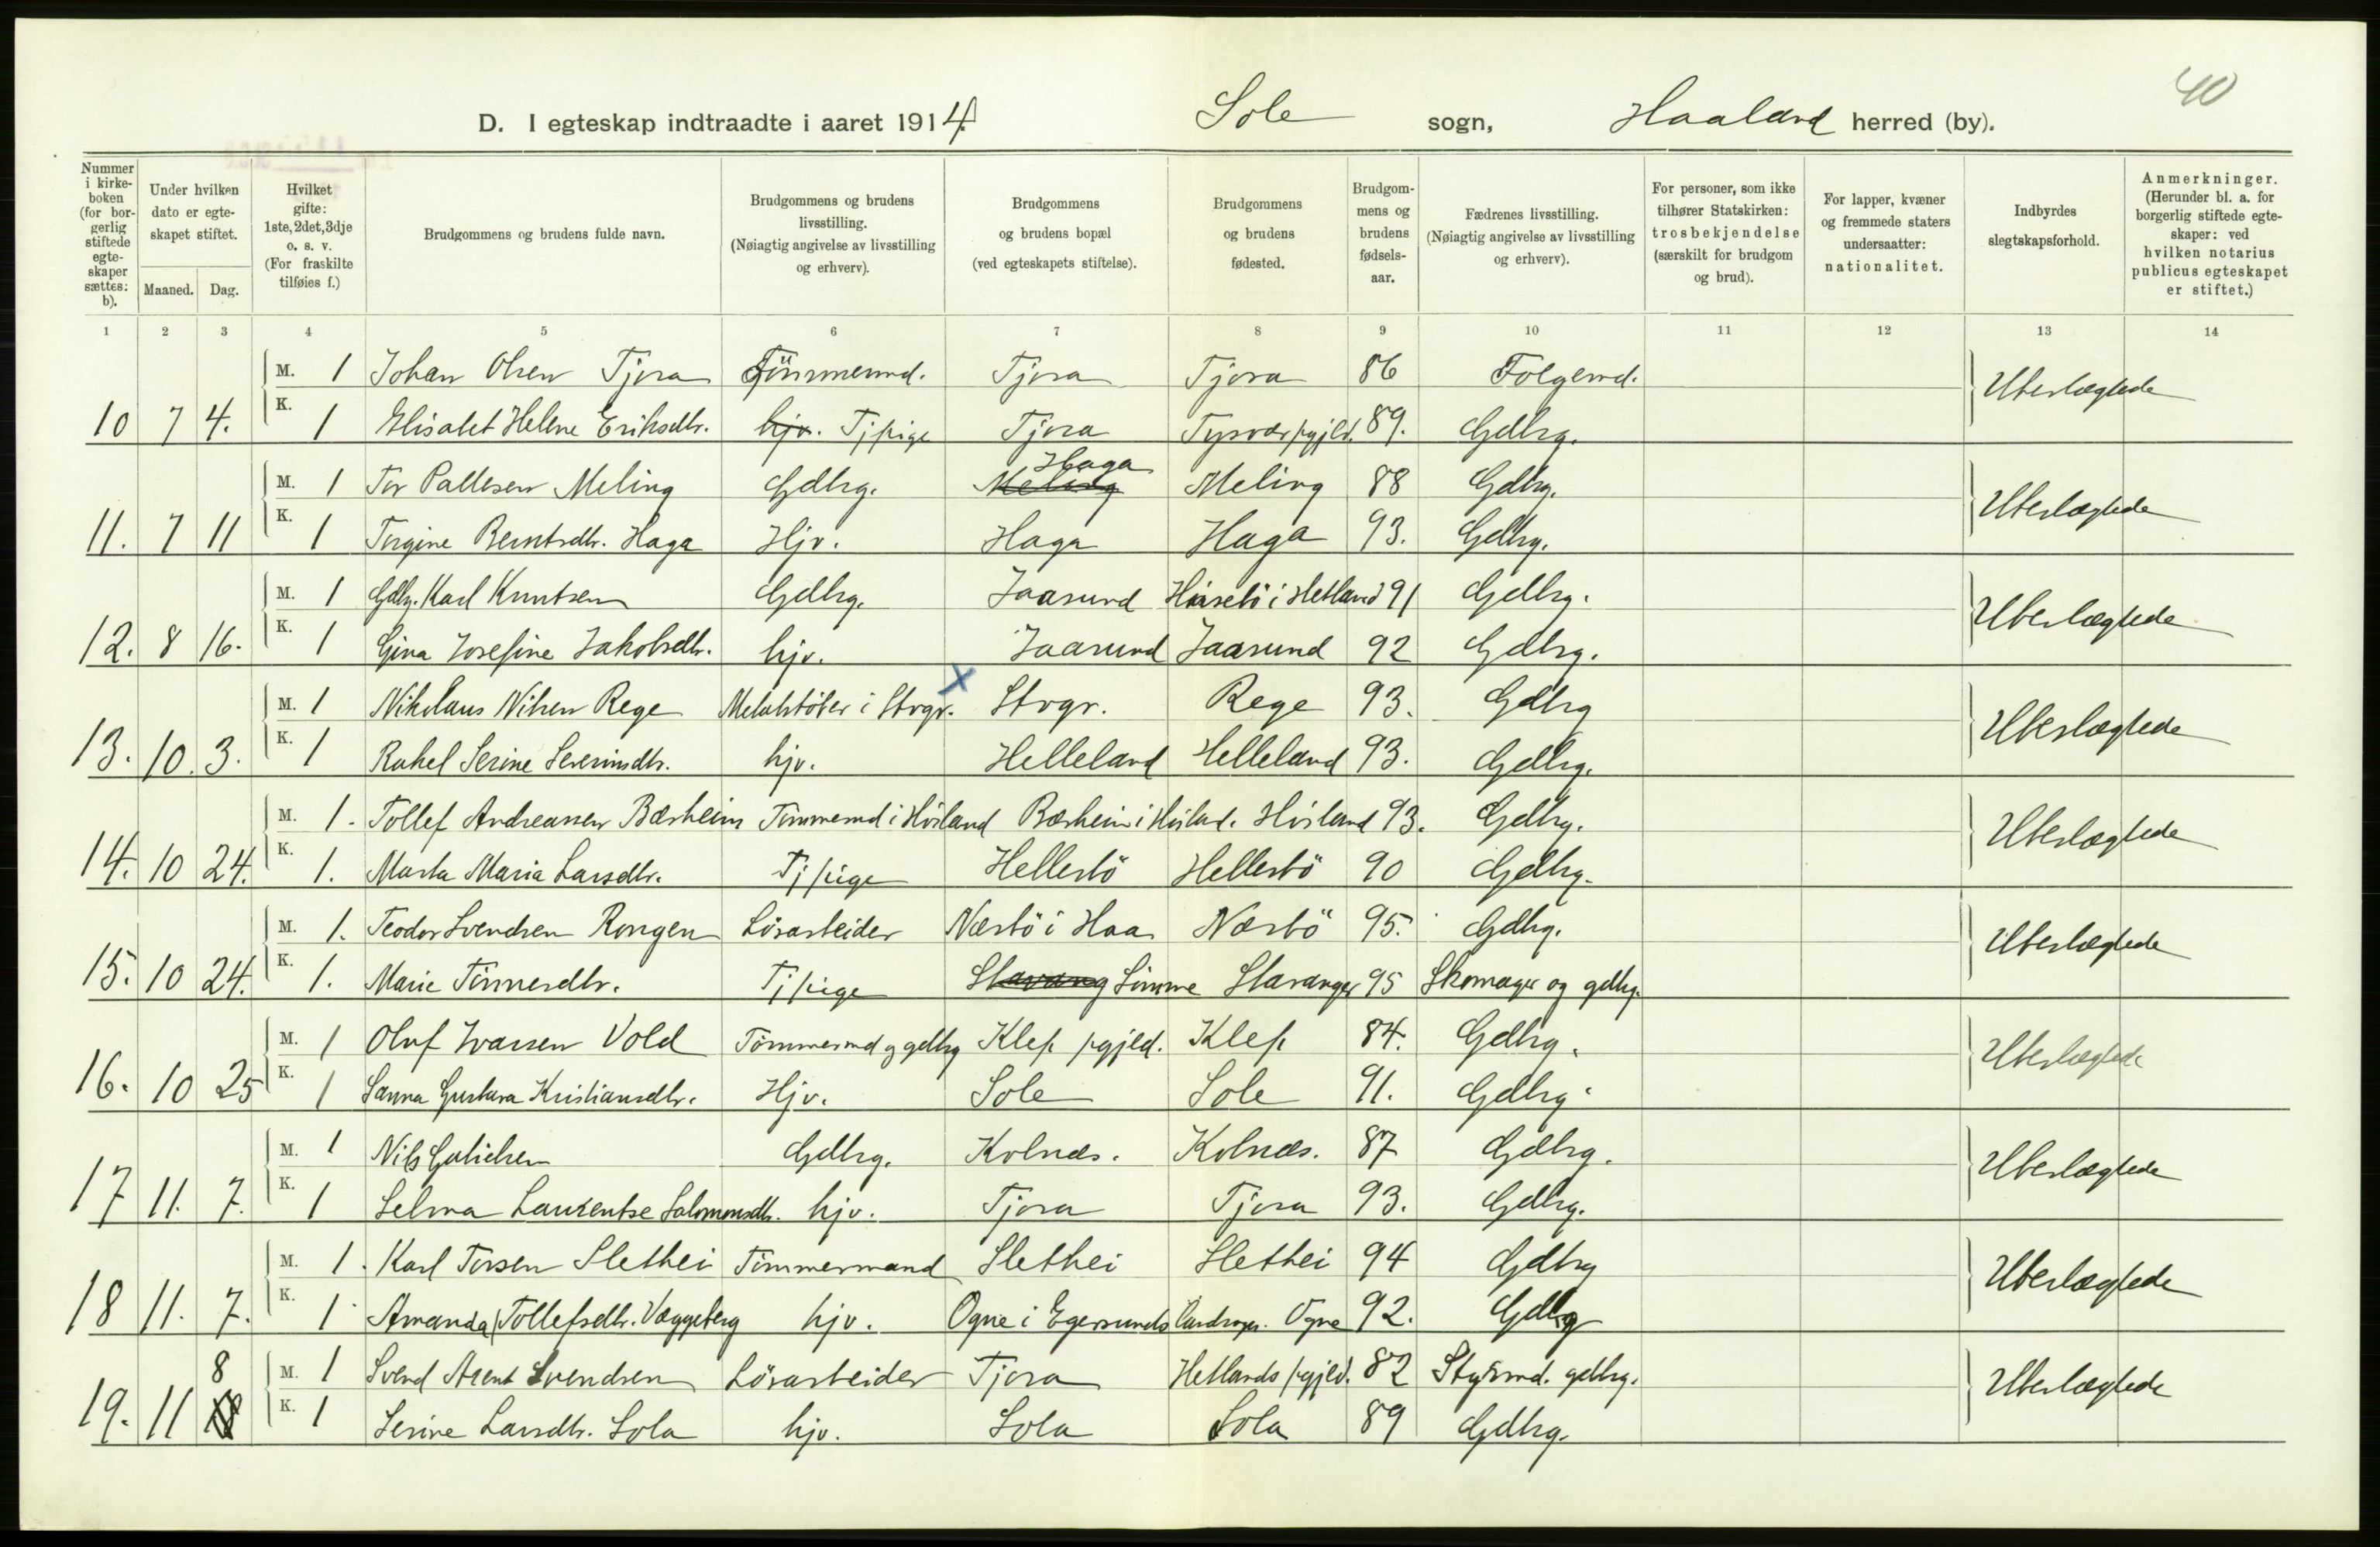 40
D. I egteskap indtraadte i aaret 1914. Sole sogn, Haaland herred (by).
Nummer i kirkeboken (for borgerlig stiftede egteskaper sættes: b).
Under hvilken dato er egteskapet stiftet.
Maaned. Dag.
Hvilket gifte: 1ste, 2det, 3dje o. s. v. (For fraskilte tilføies f.)
Brudgommens og brudens fulde navn.
Brudgommens og brudens livsstilling. (Nøiagtig angivelse av livsstilling og erhverv).
Brudgommens og brudens bopæl (ved egteskapets stiftelse).
Brudgommens og brudens fødested.
Brudgommens og brudens fødselsaar.
Fædrenes livsstilling. (Nøiagtig angivelse av livsstilling og erhverv).
For personer, som ikke tilhører Statskirken: trosbekjendelse (særskilt for brudgom og brud).
For lapper, kvæner og fremmede staters undersaatter: nationalitet.
Indbyrdes slegtskapsforhold.
Anmerkninger. (Herunder bl. a. for borgerlig stiftede egteskaper: ved hvilken notarius publicus egteskapet er stiftet.)
1 2 3 4 5 6 7 8 9 10 11 12 13 14
M. 1 Johan Olsen Tjora Tömmermd. Tjora Tjora 86 Folgemd. Ubeslægtede
10 7 4. K. 1 Elisabet Helene Eriksdtr. hjv. Tjpige Tjora Tysvær pgjld. 89. Gdbrg.
Haga
M. 1 Tor Pallesen Meling Gdbrg. Meling Meling 88 Gdbrg. Ubeslægtede
11. 7 11 K. 1 Torgine Berntsdtr. Haga Hjv. Haga Haga 93. Gdbrg.
M. 1 Gdbg. Karl Knutsen Gdbrg. Jaasund i Hetland 91 Gdbrg. Ubeslægtede
12. 8 16. K. 1 Gina Josefine Jakobsdtr. hjv. Jaasund Jaasund 92 Gdbrg.
M. 1 Nikolaus Nilsen Rege Metalstöber i Stvgr. x Stvgr. Rege 93. Gdbrg Ubeslægtede
13. 10. 3. K. 1 Rakel Serine Severinsdtr. hjv. Helleland Helleland 93. Gdbrg.
M. 1. Tollef Andreassen Bærheim Tömmermd i Höiland Bærheim i Höiland. Höiland 93. Gdbrg. Ubeslægtede
14. 10 24. K. 1. Marta Maria Larsdtr. Tjpige Hellestö Hellestö 90 Gdbrg.
M. 1. Teodor Svendsen Rongen Lösarbeider Nærbö i Haa Nærbö 95. Gdbrg. Ubeslægtede
15. 10 24. K. 1. Marie Tönnesdtr. Tjpige Stavang Sömme Stavanger 95 Skomager og gdbrg.
M. 1 Oluf Ivarsen Vold Tömmermd og gdbrg Klep pgjld. Klep 84. Gdbrg. Ubeslægtede
16. 10 25 K. 1 Sanna Gustava Kristiansdtr. Hjv. Sole Sole 91. Gdbrg.
M. 1 Nils Gabrielsen Gdbrg. Kolnæs. Kolnæs. 87 Gdbrg. Ubeslægtede
17 11. 7. K. 1 Selma Laurentse Salomonsdtr. hjv. Tjora Tjora 93. Gdbrg.
M. 1. Karl Torsen Slethei Tömmermand Slethei Slethei 94 Gdbrg Ubeslægtede
18 11. 7. K. 1 Amanda Tollefsdtr. Væggeberg hjv. Ogne i Egersunds Ogne 92. Gdbrg
8 M. 1 Svend Arent Svendsen Lösarbeider Tjora Hetlands pgjld. 82 Styrmd. gdbrg. Ubeslægtede
19. 11 K. 1 Serine Larsdtr. Sola hjv. Sola Sola 89 Gdbrg.